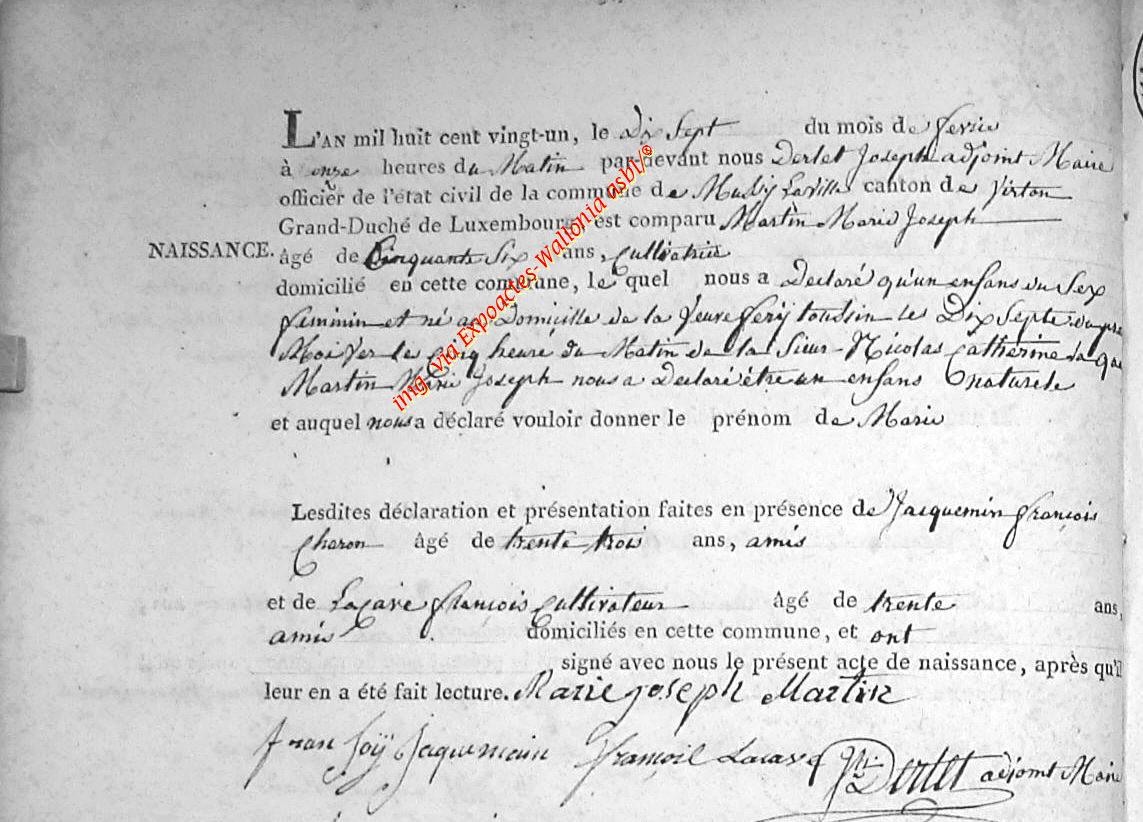 L'AN mil huit cent vingt-un, le Dix Sept du mois de fevrie
à onze heures du Matin par-devant nous Derlet Joseph adjoint Maire
officier de l'état civil de la commune de Mussy Laville canton de Virton
Grand-Duché de Luxembourg, est comparu Martin Marie Joseph
NAISSANCE. âgé de Cinquante Six ans, Cultivatrice
domicilié en cette commune, le quel nous a Declaré qu'un enfans du Sex
feminin et né au Domicille de la Veuve fery tousin les Dix Septe du
Mois Ver les Cinq heure du Matin de la Sieur Nicolas Catherine
Martin Marie Joseph nous a Declaré être un enfans naturele
et auquel nous a déclaré vouloir donner le prénom de Marie
Lesdites déclaration et présentation faites en présence de Jacquemin françois
Charon âgé de trente trois ans, amis
et de Lacave françois Cultivateur âgé de trente ans,
amis domiciliés en cette commune, et ont
signé avec nous le présent acte de naissance, après qu'il
leur en a été fait lecture. Marie joseph Martin
fran soÿ Jaquemain françoil Lacave Derlet adjoint Maire
img. via Expoactes-Wallonia asbl/®